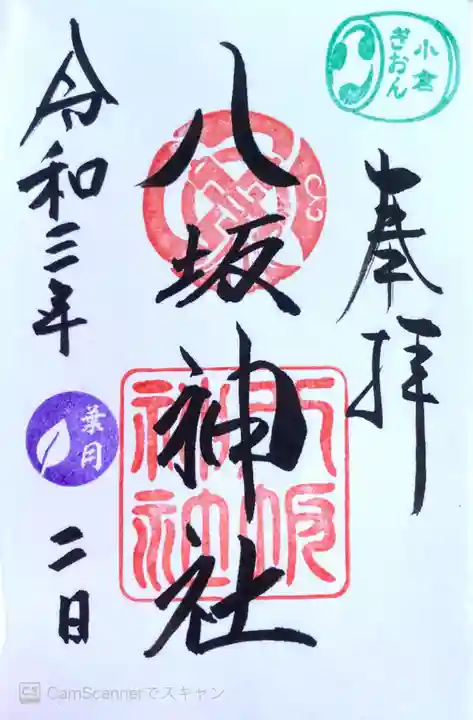 小倉
ぎおん
奉拝
八坂神社
八坂
神社
令和三年
葉月
二日
CS CamScannerでスキャン